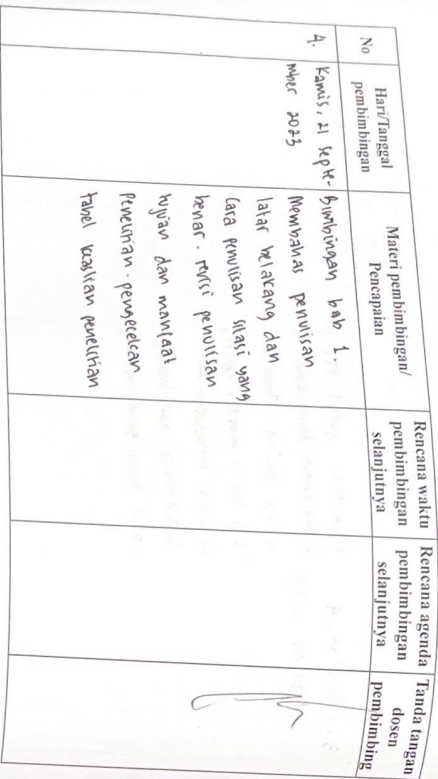 No
Hari/Tanggal
pembimbingan
Materi pembimbingan/
Pencapaian
Rencana waktu
pembimbingan
selanjutnya
Rencana agenda
pembimbingan
selanjutnya
Tanda tangan
dosen
pembimbing
4.
Kamis, 21 Septe-
mber 2023
Bimbingan bab 1.
Membahas penulisan
latar belakang dan
cara penulisan sitasi yang
benar. revisi penulisan
tujuan dan manfaat
penelitian. pengecekan
tabel keaslian penelitian